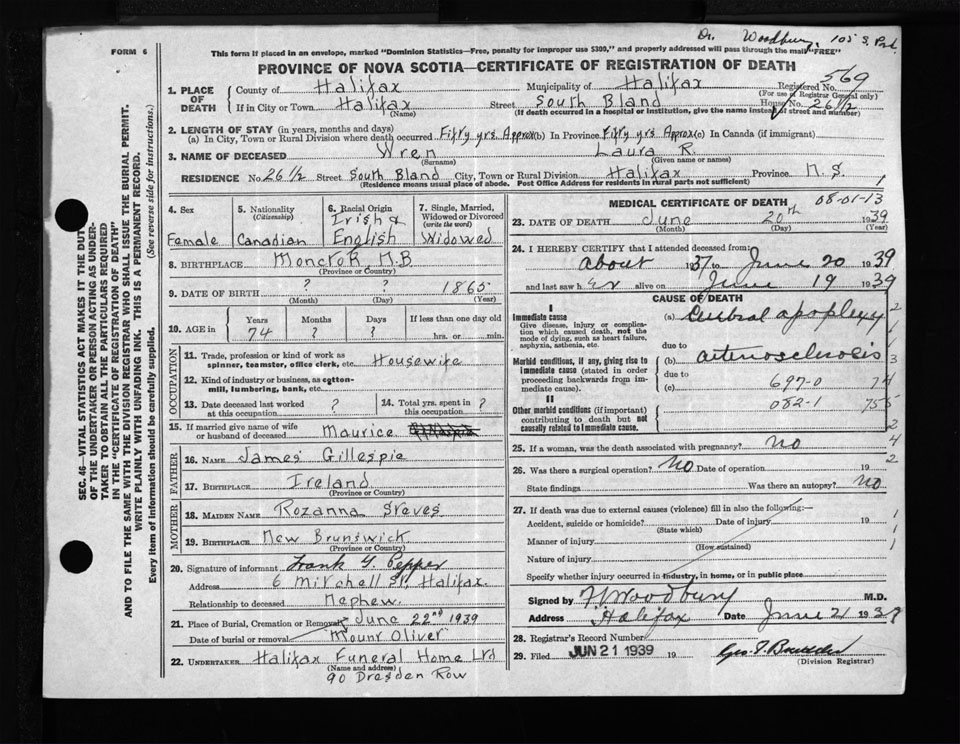 Dr. Woodbury, 105 S. Park
FORM 6
This form if placed in an envelope, marked "Dominion Statistics—Free, penalty for improper use $300," and properly addressed will pass through the mail "FREE"
PROVINCE OF NOVA SCOTIA—CERTIFICATE OF REGISTRATION OF DEATH
1. PLACE OF DEATH County of Halifax Municipality of Halifax Registered No. 569
(For use of Registrar General only)
If in City or Town Halifax Street South Bland House No. 26 1/2
(Name) (If death occurred in a hospital or institution, give the name instead of street and number)
2. LENGTH OF STAY (in years, months and days)
(a) In City, Town or Rural Division where death occurred Fifty yrs. Approx (b) In Province Fifty yrs Approx (c) In Canada (if immigrant)
3. NAME OF DECEASED Wren Laura R.
(Surname) (Given name or names)
RESIDENCE No. 26 1/2 Street South Bland City, Town or Rural Division Halifax Province N. S. 1
(Residence means usual place of abode. Post Office Address for residents in rural parts not sufficient)
4. Sex
Female
5. Nationality
(Citizenship)
Canadian
6. Racial Origin
Irish &
English
7. Single, Married,
Widowed or Divorced
(write the word)
Widowed
8. BIRTHPLACE Moncton, N.B.
(Province or Country)
9. DATE OF BIRTH ? ? 1865
(Month) (Day) (Year)
10. AGE in Years Months Days If less than one day old
74 ? ? hrs. or min.
OCCUPATION
11. Trade, profession or kind of work as
spinner, teamster, office clerk, etc. Housewife
12. Kind of industry or business, as cotton-
mill, lumbering, bank, etc.
13. Date deceased last worked
at this occupation ?
14. Total yrs. spent in
this occupation ?
15. If married give name of wife
or husband of deceased Maurice
FATHER
16. NAME James Gillespie
17. BIRTHPLACE Ireland
(Province or Country)
MOTHER
18. MAIDEN NAME Rozanna Steves
19. BIRTHPLACE New Brunswick
(Province or Country)
20. Signature of informant Frank G. Pepper
Address 6 Mitchell St. Halifax.
Relationship to deceased Nephew.
21. Place of Burial, Cremation or Removal June 22nd 1939
Date of burial or removal Mount Oliver
22. UNDERTAKER Halifax Funeral Home Ltd
(Name and address)
90 Dresden Row
MEDICAL CERTIFICATE OF DEATH 08-01-13
23. DATE OF DEATH June 20th 1939
(Month) (Day) (Year)
24. I HEREBY CERTIFY that I attended deceased from:
about 1937 to June 20 1939
and last saw her alive on June 19 1939
CAUSE OF DEATH
I
Immediate cause
Give disease, injury or complica-
tion which caused death, not the
mode of dying, such as heart failure,
asphyxia, asthenia, etc.
(a) Cerebral apoplexy
due to
Morbid conditions, if any, giving rise to
immediate cause (stated in order
proceeding backwards from im-
mediate cause).
(b) arteriosclerosis
due to
(c) 697-0 74
082-1 75
II
Other morbid conditions (if important)
contributing to death but not
causally related to immediate cause.
25. If a woman, was the death associated with pregnancy? no
26. Was there a surgical operation? No Date of operation 19
State findings Was there an autopsy? no
27. If death was due to external causes (violence) fill in also the following:—
Accident, suicide or homicide? Date of injury 19
(State which)
Manner of injury
(How sustained)
Nature of injury
Specify whether injury occurred in industry, in home, or in public place
Signed by F. Woodbury M.D.
Address Halifax Date June 21 1939
28. Registrar's Record Number
29. Filed JUN 21 1939 19
(Division Registrar)
SEC. 46—VITAL STATISTICS ACT MAKES IT THE DUTY
OF THE UNDERTAKER OR PERSON ACTING AS UNDER-
TAKER TO OBTAIN ALL THE PARTICULARS REQUIRED
IN THE "CERTIFICATE OF REGISTRATION OF DEATH"
AND TO FILE THE SAME WITH THE DIVISION REGISTRAR WHO SHALL ISSUE THE BURIAL PERMIT.
WRITE PLAINLY WITH UNFADING INK. THIS IS A PERMANENT RECORD.
Every item of information should be carefully supplied. (See reverse side for instructions.)